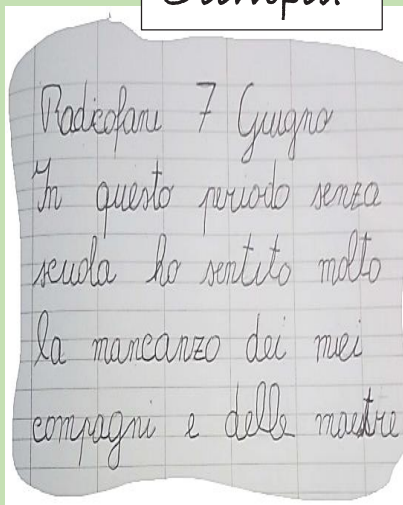 Radicofani 7 Giugno
In questo periodo senza
scuola ho sentito molto
la mancanzo dei miei
compagni e delle maestre